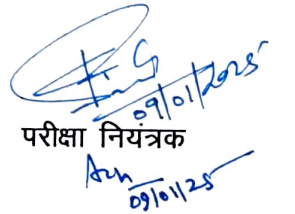 09/01/2025
परीक्षा नियंत्रक
09/01/25